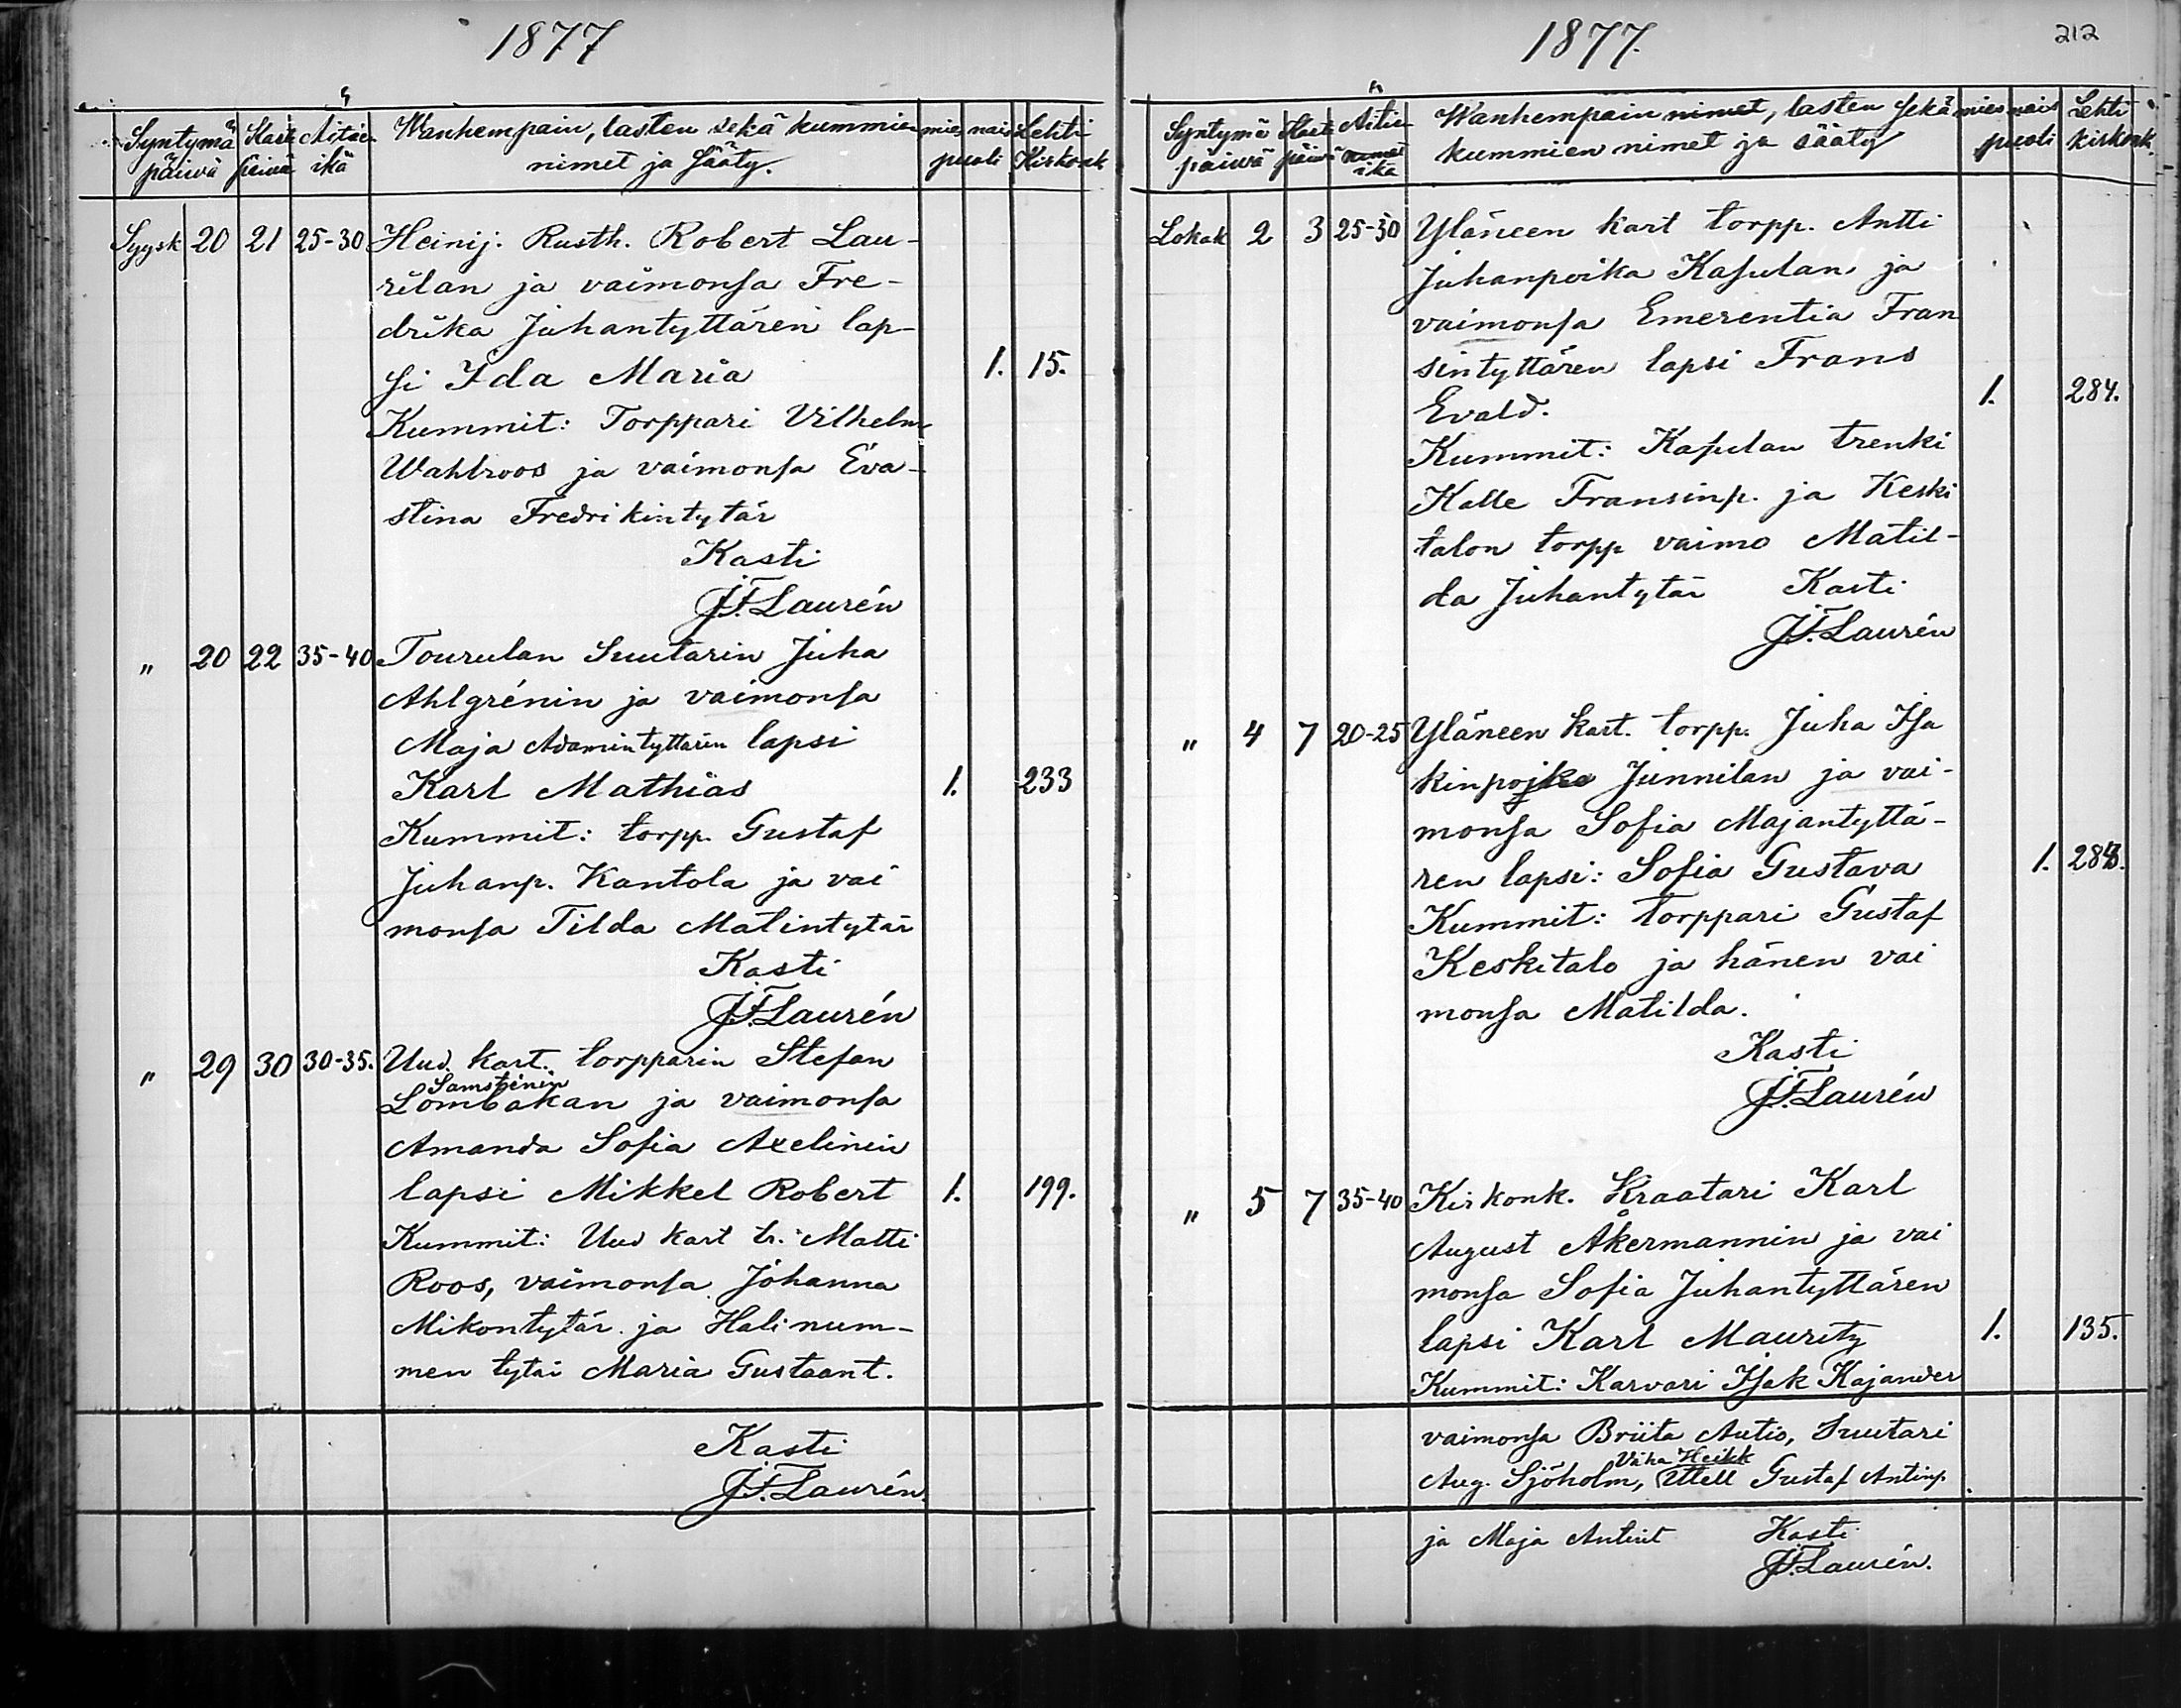 1877
Syntymä päivä Kast päivä Äitin ikä Wanhempain, lasten sekä kummien nimet ja sääty. mies nais puoli Lehti Kirkonk
Syysk 20 21 25-30 Heinij. Rusth. Robert Lau-
rilan ja vaimonsa Fre-
drika Juhantyttären lap-
si Ida Maria 1. 15.
Kummit: Torppari Vilhelm
Wahlroos ja vaimonsa Eva-
stina Fredrikintytär
Kasti
J.F. Laurén
" 20 22 35-40 Tourulan Suutarin Juha
Ahlgrénin ja vaimonsa
Maja Adamintyttären lapsi
Karl Mathias 1. 233
Kummit: torpp. Gustaf
Juhanp. Kantola ja vai
monsa Tilda Matintytär
Kasti
J.F. Laurén
" 29 30 30-35. Uud. kart. torpparin Stefan
Samstenin
Lombakan ja vaimonsa
Amanda Sofia Axelinin
lapsi Mikkel Robert 1. 199.
Kummit: Uud kart tr. Matti
Roos, vaimonsa Johanna
Mikontytär ja Halinum-
men tytär Maria Gustaant.
Kasti
J.F. Laurén.
1877.
212
Syntymä päivä Kast päivä Äitin nimet ikä Wanhempain nimet, lasten sekä kummien nimet ja sääty mies nais puoli Lehti kirkonk.
Lokak 2 3 25-30 Yläneen kart torpp. Antti
Juhanpoika Kasulan ja
vaimonsa Emerentia Fran
sintyttären lapsi Frans
Evald. 1. 284.
Kummit: Kasulan trenki
Kalle Fransinp. ja Keski
talon torpp vaimo Matil-
da Juhantytär Kasti
J.F. Laurén
" 4 7 20-25 Yläneen kart. torpp. Juha Isa
kinpojka Junnilan ja vai-
monsa Sofia Majantyttä-
ren lapsi: Sofia Gustava 1. 283.
Kummit: torppari Gustaf
Keskitalo ja hänen vai
monsa Matilda.
Kasti
J.F. Laurén
" 5 7 35-40 Kirkonk. Kraatari Karl
August Åkermannin ja vai
monsa Sofia Juhantyttären
lapsi Karl Mauritz 1. 135.
Kummit: Karvari Isak Kajander
vaimonsa Briita Autio, Suutari
Vähä Heikk
Aug. Sjöholm, Itell Gustaf Antinp.
ja Maja Antint Kasti
J.F. Laurén.